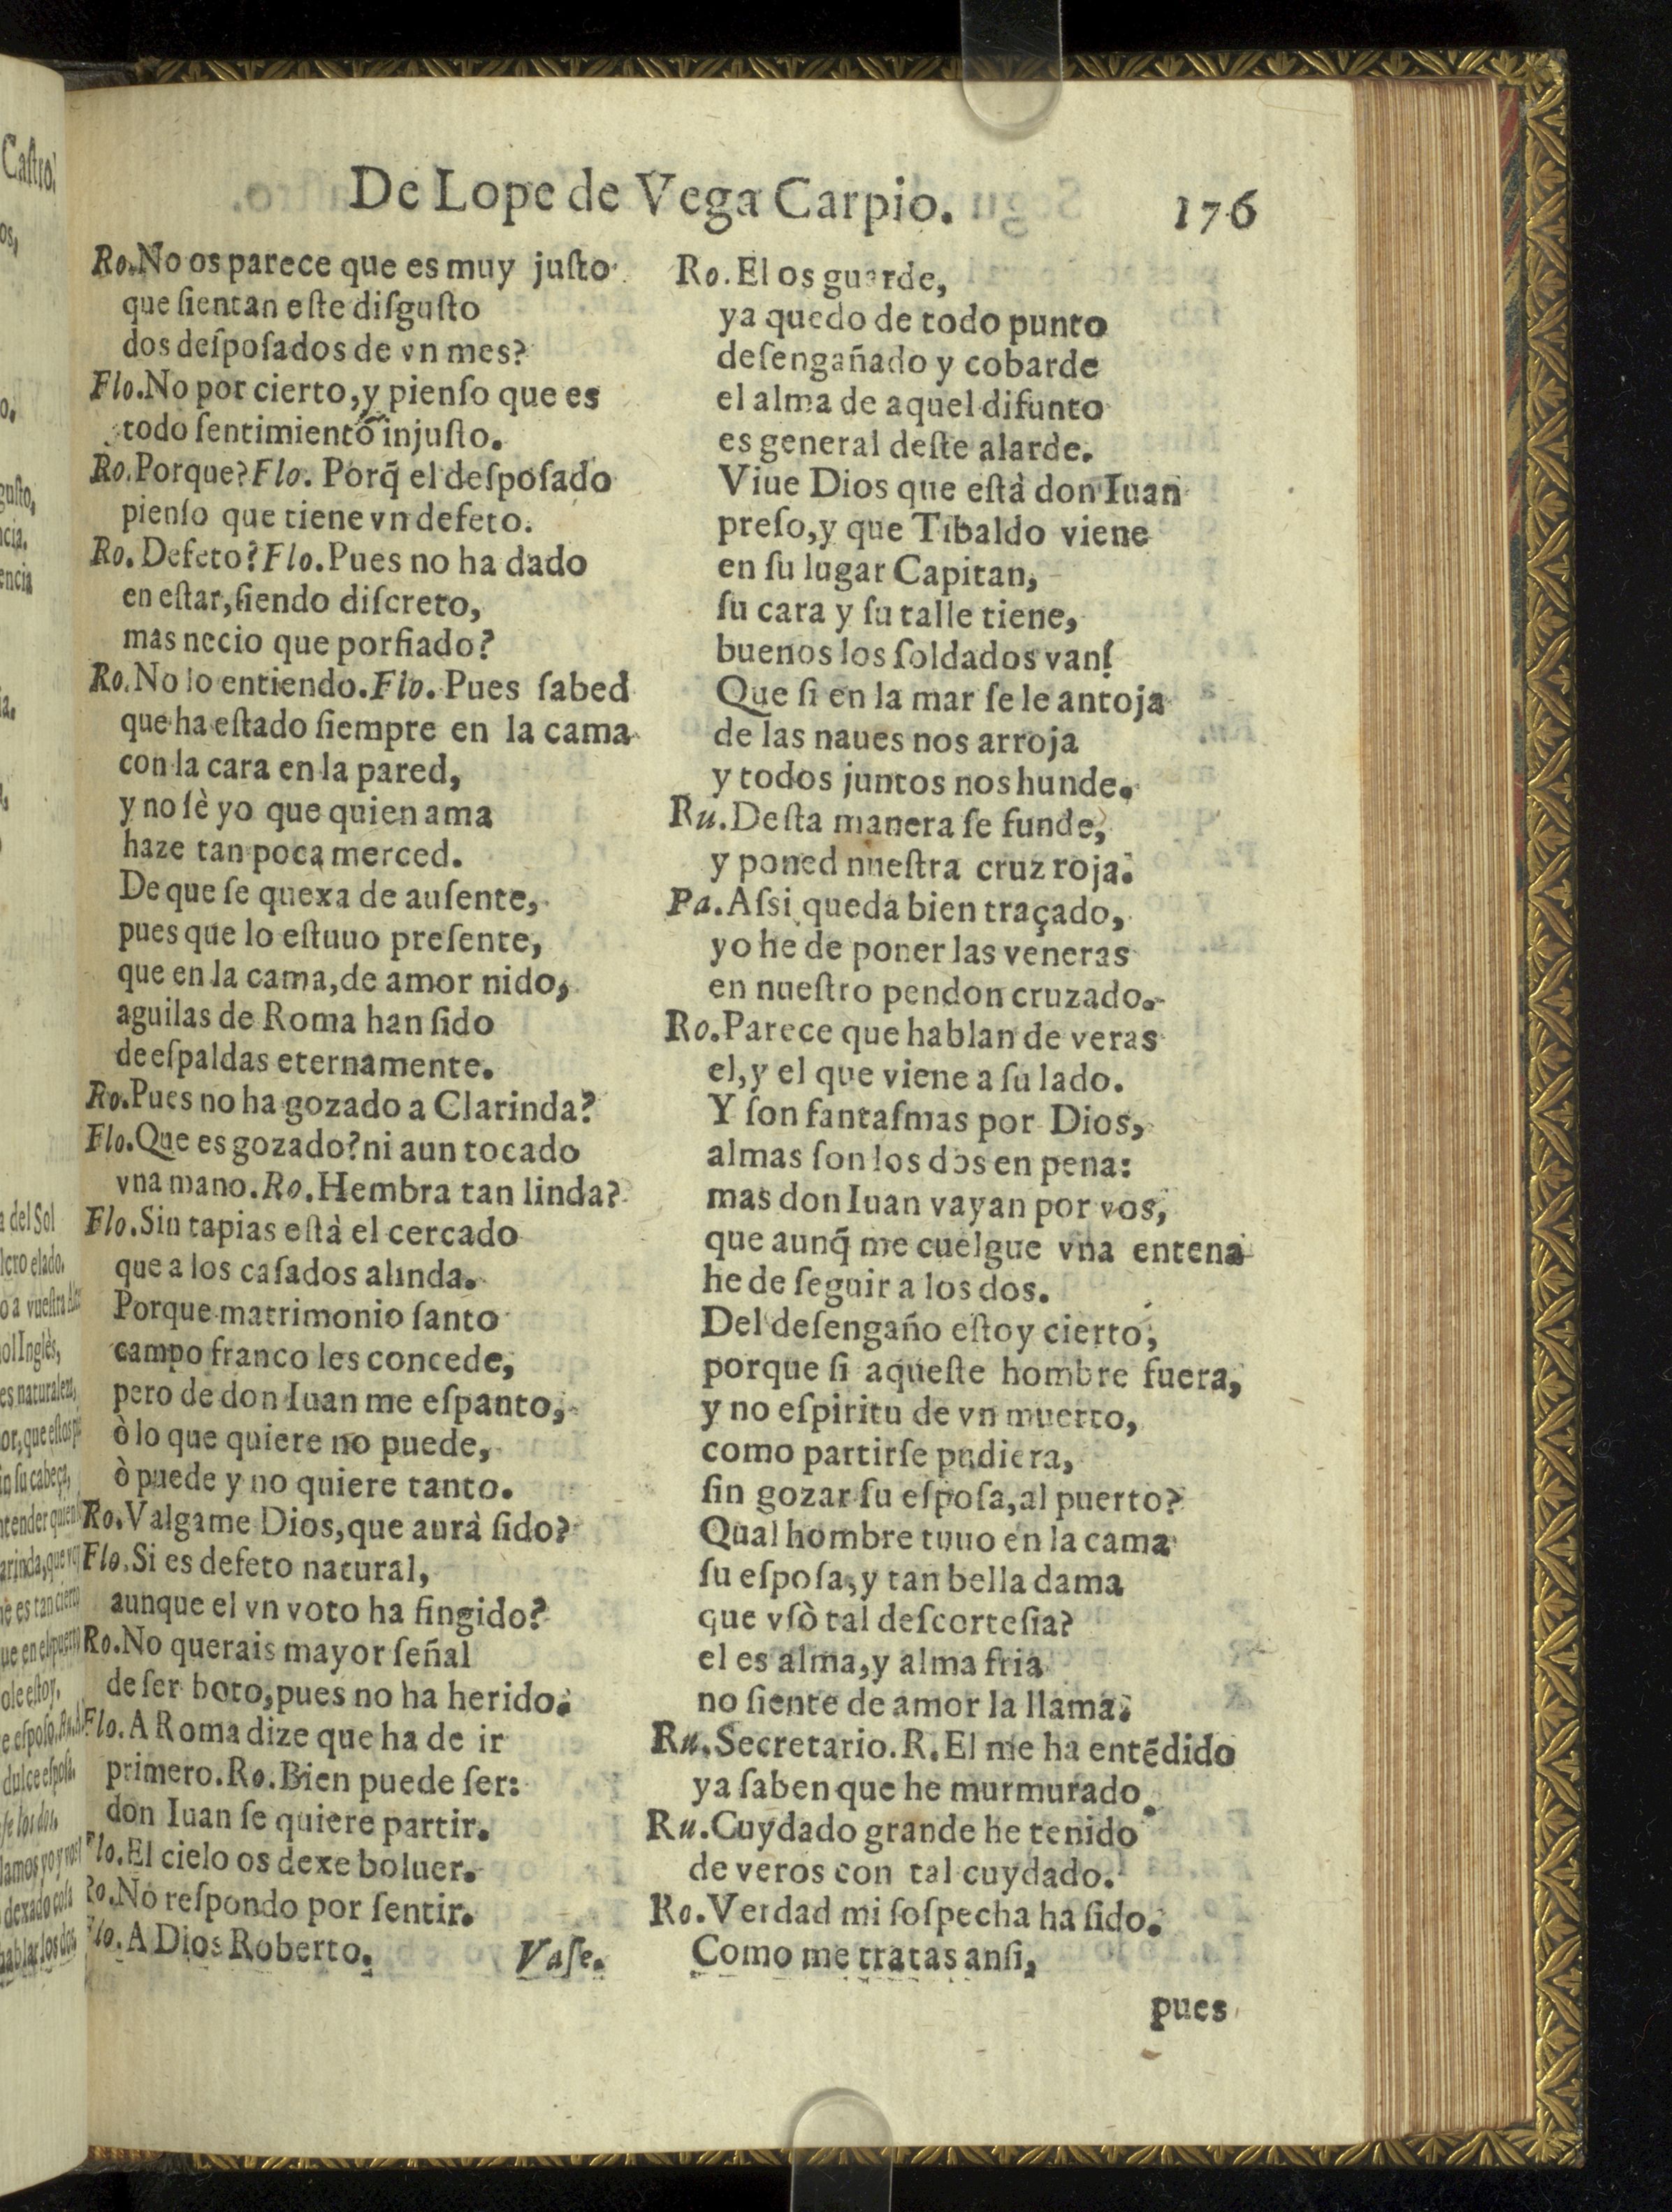 De Lope de Vega Carpio. 176
Ro. No os parece que es muy juſto
que ſientan eſte diſguſto
dos deſpoſados de vn mes?
Flo. No por cierto, y pienſo que es
todo ſentimiento injuſto.
Ro. Porque? Flo. Porq̃ el deſpoſado
pienſo que tiene vn defeto.
Ro. Defeto? Flo. Pues no ha dado
en eſtar, ſiendo diſcreto,
mas necio que porfiado?
Ro. No lo entiendo. Flo. Pues ſabed
que ha eſtado ſiempre en la cama
con la cara en la pared,
y no ſè yo que quien ama
haze tan poca merced.
De que ſe quexa de auſente,
pues que lo eſtuuo preſente,
que en la cama, de amor nido,
aguilas de Roma han ſido
de eſpaldas eternamente.
Ro. Pues no ha gozado a Clarinda?
Flo. Que es gozado? ni aun tocado
vna mano. Ro. Hembra tan linda?
Flo. Sin tapias eſtà el cercado
que a los caſados alinda.
Porque matrimonio ſanto
campo franco les concede,
pero de don Iuan me eſpanto,
ò lo que quiere no puede,
ò puede y no quiere tanto.
Ro. Valgame Dios, que aurà ſido?
Flo. Si es defeto natural,
aunque el vn voto ha fingido?
Ro. No querais mayor ſeñal
de ſer boto, pues no ha herido.
Flo. A Roma dize que ha de ir
primero. Ro. Bien puede ſer:
don Iuan ſe quiere partir.
Flo. El cielo os dexe boluer.
Ro. No reſpondo por ſentir.
Flo. A Dios Roberto. Vaſe.
Ro. El os guarde,
ya quedo de todo punto
deſengañado y cobarde
el alma de aquel difunto
es general deſte alarde.
Viue Dios que eſtà don Iuan
preſo, y que Tibaldo viene
en ſu lugar Capitan,
ſu cara y ſu talle tiene,
buenos los ſoldados van!
Que ſi en la mar ſe le antoja
de las naues nos arroja
y todos juntos nos hunde.
Ru. Deſta manera ſe funde,
y poned nueſtra cruz roja.
Pa. Aſsi queda bien traçado,
yo he de poner las veneras
en nueſtro pendon cruzado.
Ro. Parece que hablan de veras
el, y el que viene a ſu lado.
Y ſon fantaſmas por Dios,
almas ſon los dos en pena:
mas don Iuan vayan por vos,
que aunq̃ me cuelgue vna entena
he de ſeguir a los dos.
Del deſengaño eſtoy cierto,
porque ſi aqueſte hombre fuera,
y no eſpiritu de vn muerto,
como partirſe pudiera,
ſin gozar ſu eſpoſa, al puerto?
Qual hombre tuuo en la cama
ſu eſpoſa, y tan bella dama
que vſò tal deſcorteſia?
el es alma, y alma fria
no ſiente de amor la llama.
Ru. Secretario. R. El me ha entẽdido
ya ſaben que he murmurado.
Ru. Cuydado grande he tenido
de veros con tal cuydado.
Ro. Verdad mi ſoſpecha ha ſido.
Como me tratas anſi,
pues